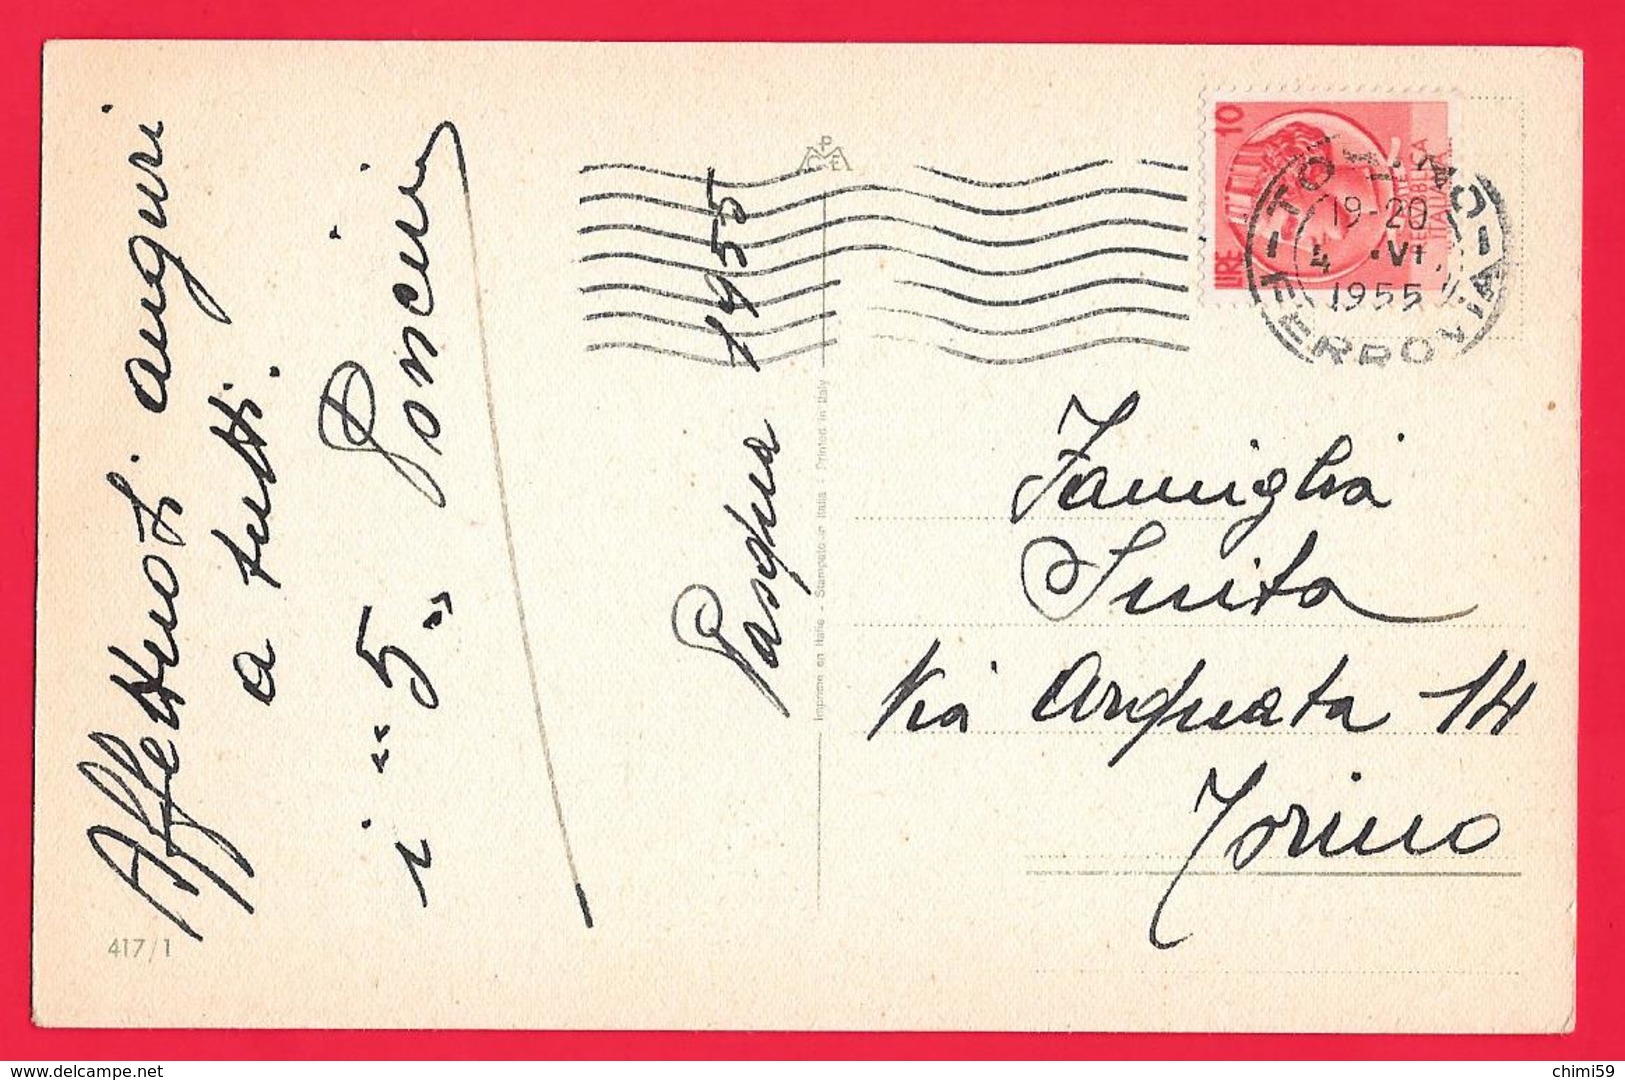 Affettuosi auguri
a tutti.
i "5" Poncini
Pasqua 1955
Imprimé en Italie - Stampato in Italia - Printed in Italy
417/1
LIRE 10
REPUBBLICA
ITALIANA
TORINO
FERROVIA
19-20
4 . VI
1955
Famiglia
Suita
Via Arquata 14
Torino
www.delcampe.net
chimi59